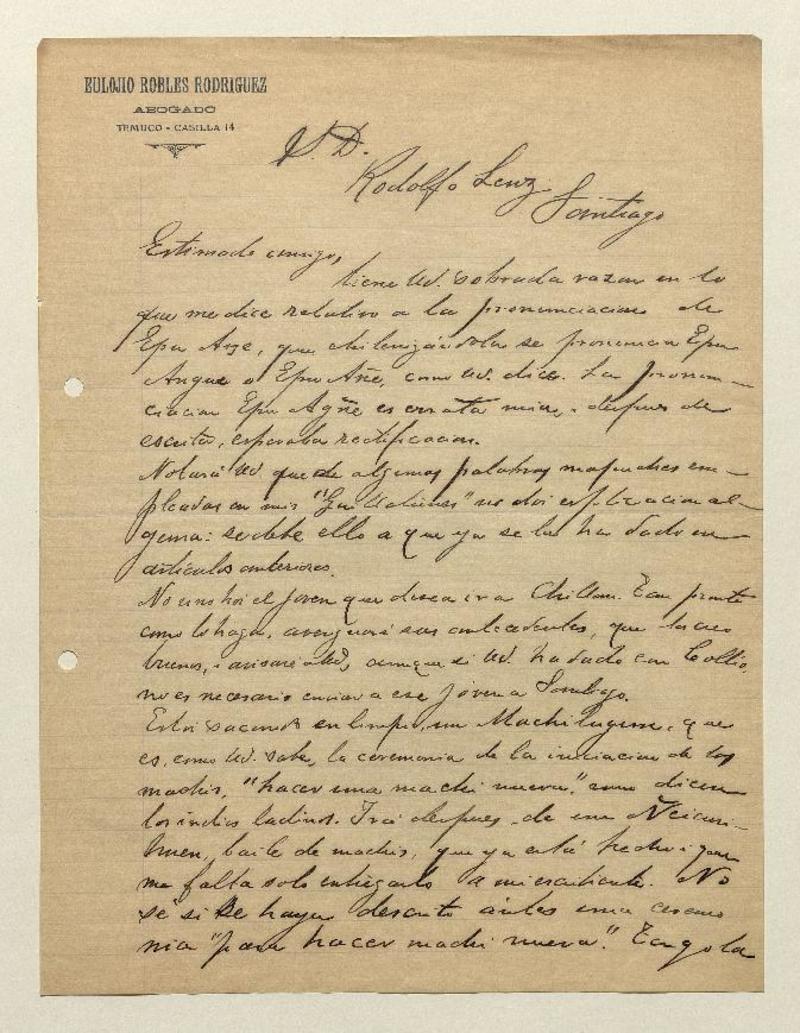 EULOJIO ROBLES RODRIGUEZ
ABOGADO
TEMUCO - CASILLA 14
S. D.
Rodolfo Lenz.
Santiago
Estimado amigo,
tiene Ud. sobrada razon en lo
que me dice relativo a la pronunciacion de
Epu Ange, que chilenizándola se pronuncia Epu
Angue o Epu Añe, como Ud. dice. La pronun-
ciacion Epu Agñe es errata mia, i despues de
escrita, esperaba rectificacion.
Notará Ud. que de algunas palabras mapuches em-
pleadas en mis "Guillatunes" no doi esplicacion al-
guna: se debe ello a que ya se la ha dado en
artículos anteriores.
No vino hoi el jóven que desea ir a Chillan. Tan pronto
como lo haga, averiguaré sus antecedentes, que los creo
buenos, i avisaré a Ud, aunque si Ud. ha dado con Collio,
no es necesario enviar a ese jóven a Santiago.
Estoi sacando en limpio un Machiluwun, que
es, como Ud. sabe, la ceremonia de la iniciacion de los
machis, "hacer una machi nueva", como dicen
los indios ladinos. Irá despues de un Ñeicuri-
huen, baile de machis, que ya está hecho i que
me falta solo entregarlo a mi escribiente. No
sé si se haya descrito ántes una ceremo
nia "para hacer machi nueva". Tengo la